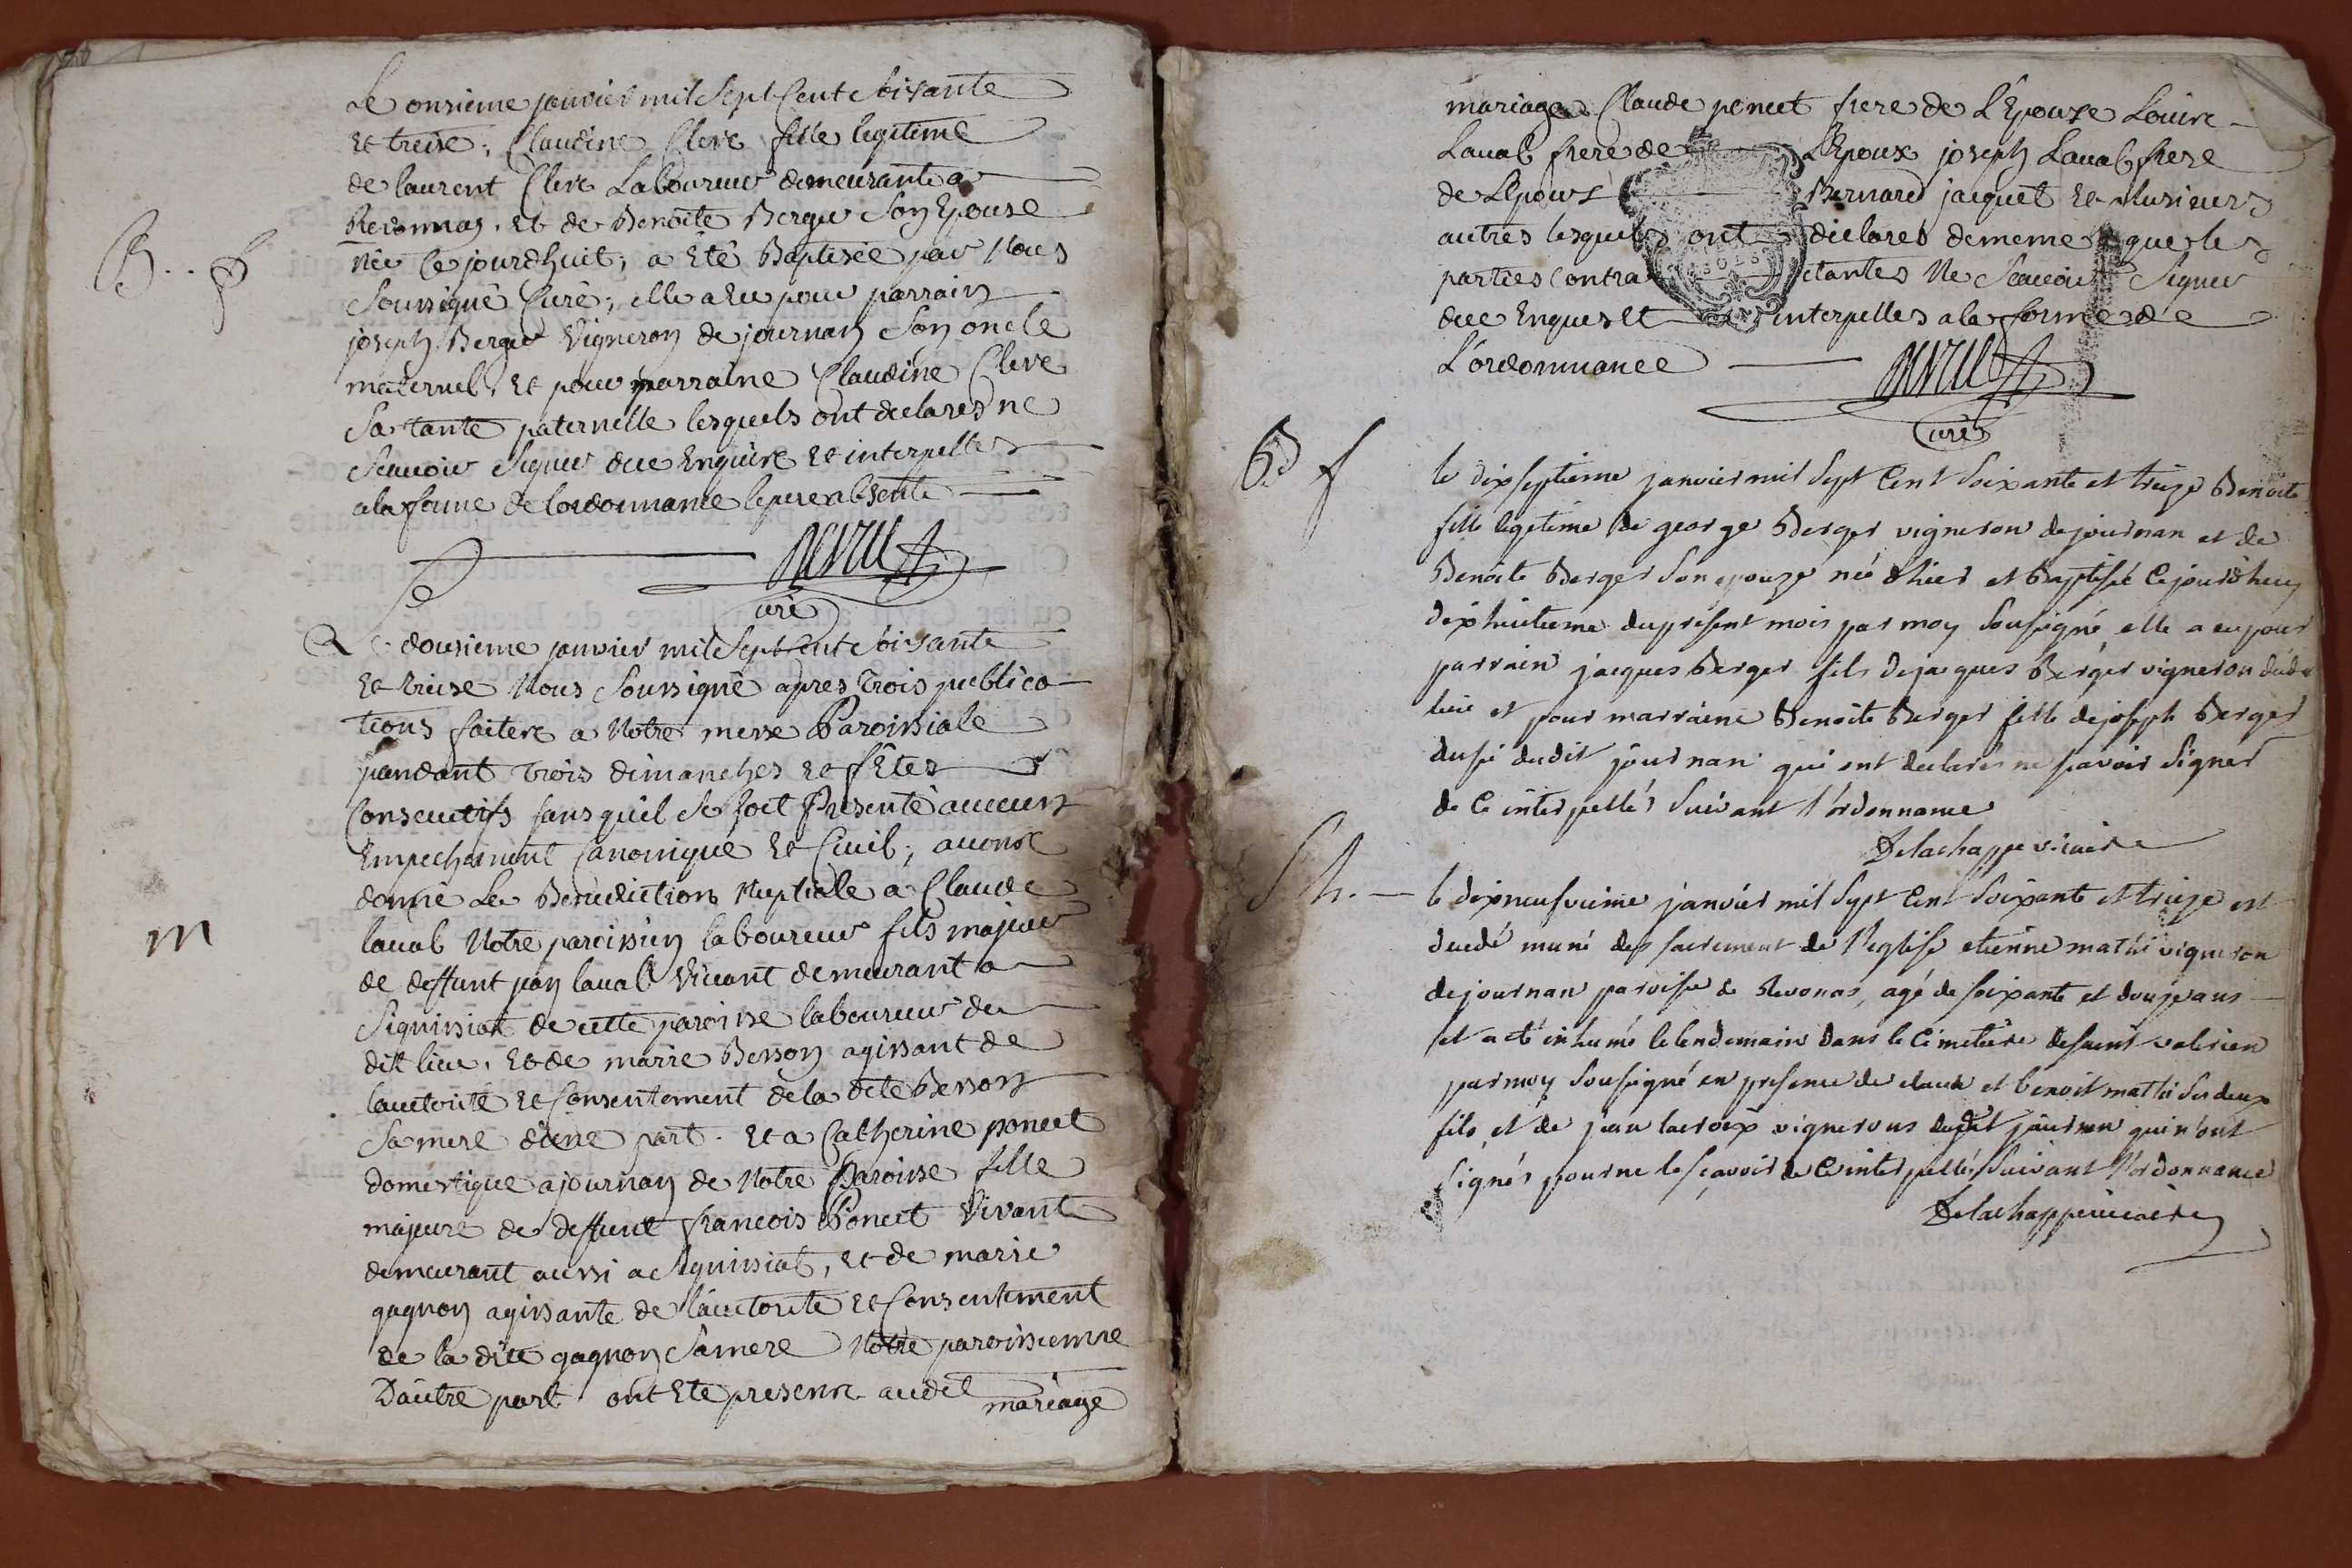 Le onsieme janvier mil Sept Cent Soisante
et treise, Claudine Clere fille legitime
de laurent Clere Laboureur demeurante a
Revonnas. et de Benoite Berger Son Epouse
née Ce jourdhuit, a Eté Baptisée par Nous
Soussigné Curé, elle a Eu pour parrain
joseph Berger Vigneron de journan Son oncle
maternel. et pour marraine Claudine Clere
Sa tante paternelle lesquels ont declarés ne
Scauoir Signer de ce Enquire et interpellés
a la forme de lordonnance le pere absent
Curé
B.. f
Le dousieme janvier mil Sept Cent Soisante
et treise Nous Soussigné apres trois publica
tions faitere a Notre messe Paroissiale
pandant trois dimanches et fêtes
Consecutifs sans quil Se soit Presenté aucun
Empechement Canonique et Civil, auons
donné La Benediction Nuptiale a Claude
laual Notre paroissien laboureur fils majeur
de deffunt jean laual Vivant demeurant a
Signissiat de cette paroisse laboureur du
dit lieu. et de marie Besson agissant de
lauctorité et Consentement de la dite Besson
Sa mere d'une part. et a Catherine poncet
domestique a journan de Notre Paroisse fille
majeure de deffunt francois Poncet Vivant
demeurant aussi a Signissiat, et de marie
gagnon agissante de l'auctorité et Consentement
de la dite gagnon Sa mere Notre paroissienne
D'autre part ont Eté presens audit
mariage
m
mariage Claude poncet frere de L'Epouse Louise
Laual frere de L'Epoux joseph Laual frere
de L'Epoux Bernard jacquet et plusieurs
autres lesquels ont declarés de meme que les
parties Contractantes Ne Scauoir Signer
de ce Enques et interpelles a la forme de
L'ordonnance
Curé
B f
le dixseptieme janvier mil Sept Cent Soixante et treize Benoite
fille legitime de george Berger vigneron de journan et de
Benoite Berger Son epouze née d'hier et Baptisée Cejourdhuy
dixhuitieme du présent mois par moy Sousigné elle a eu pour
parrain jacques Berger fils de jacques Berger vigneron dudit
lieu et pour marraine Benoite Berger fille de joseph Berger
dudit journan qui ont declarés ne scavoir Signer
de Ce interpellés Suivant l'ordonnance
Delachappe vicaire
S h. —
le dixneufvieme janvier mil Sept Cent Soixante et treize est
decédé muni des sacrement de l'eglise etienne mathi vigneron
de journan paroisse de Revonas, agé de soixante et douze ans
et a eté inhumé le lendemain dans le Cimetiere de saint valerien
par moy Sousigné en presence de claude et benoit mathi Ses deux
fils, et de jean lacroix vignerons dudit journan qui n'ont
Signés pour ne le scavoir de Ce interpellés Suivant l'ordonnance
Delachappe vicaire